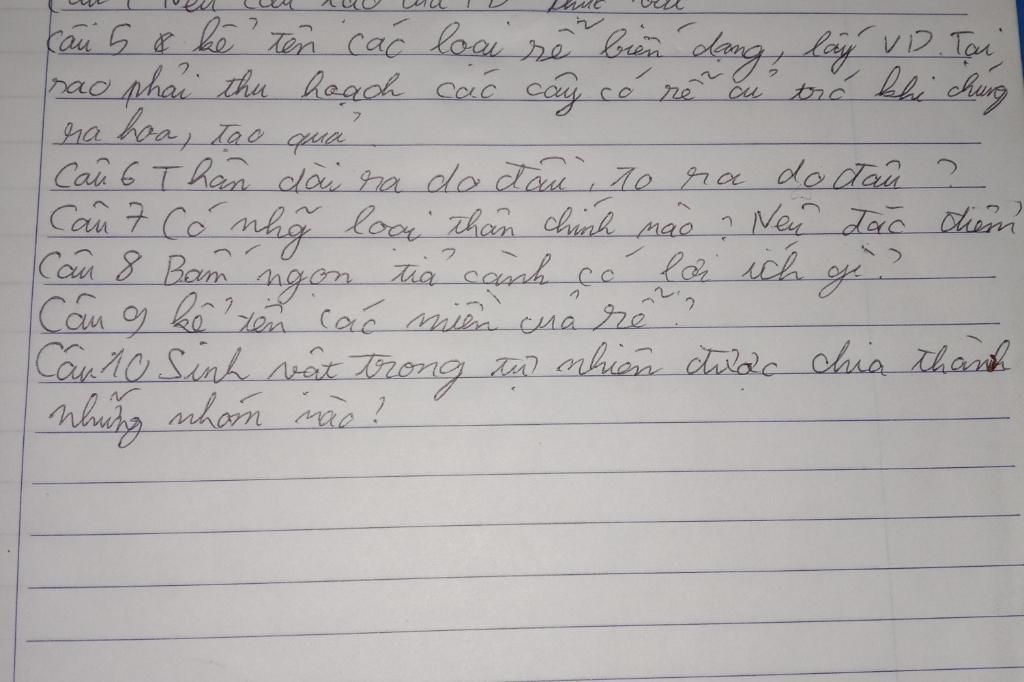 Câu 5 kể tên các loại rễ biến dạng, lấy VD. Tại
sao phải thu hoạch các cây có rễ củ trc khi chúng
ra hoa, tạo quả
Câu 6 Thân dài ra do đâu, to ra do đâu ?
Câu 7 Có nhg̃ loại thân chính nào ? Nêu đặc điểm
Câu 8 Bấm ngọn tỉa cành có lợi ích gì ?
Câu 9 kể tên các miền của rễ ?
Câu 10 Sinh vật trong tự nhiên được chia thành
những nhóm nào ?